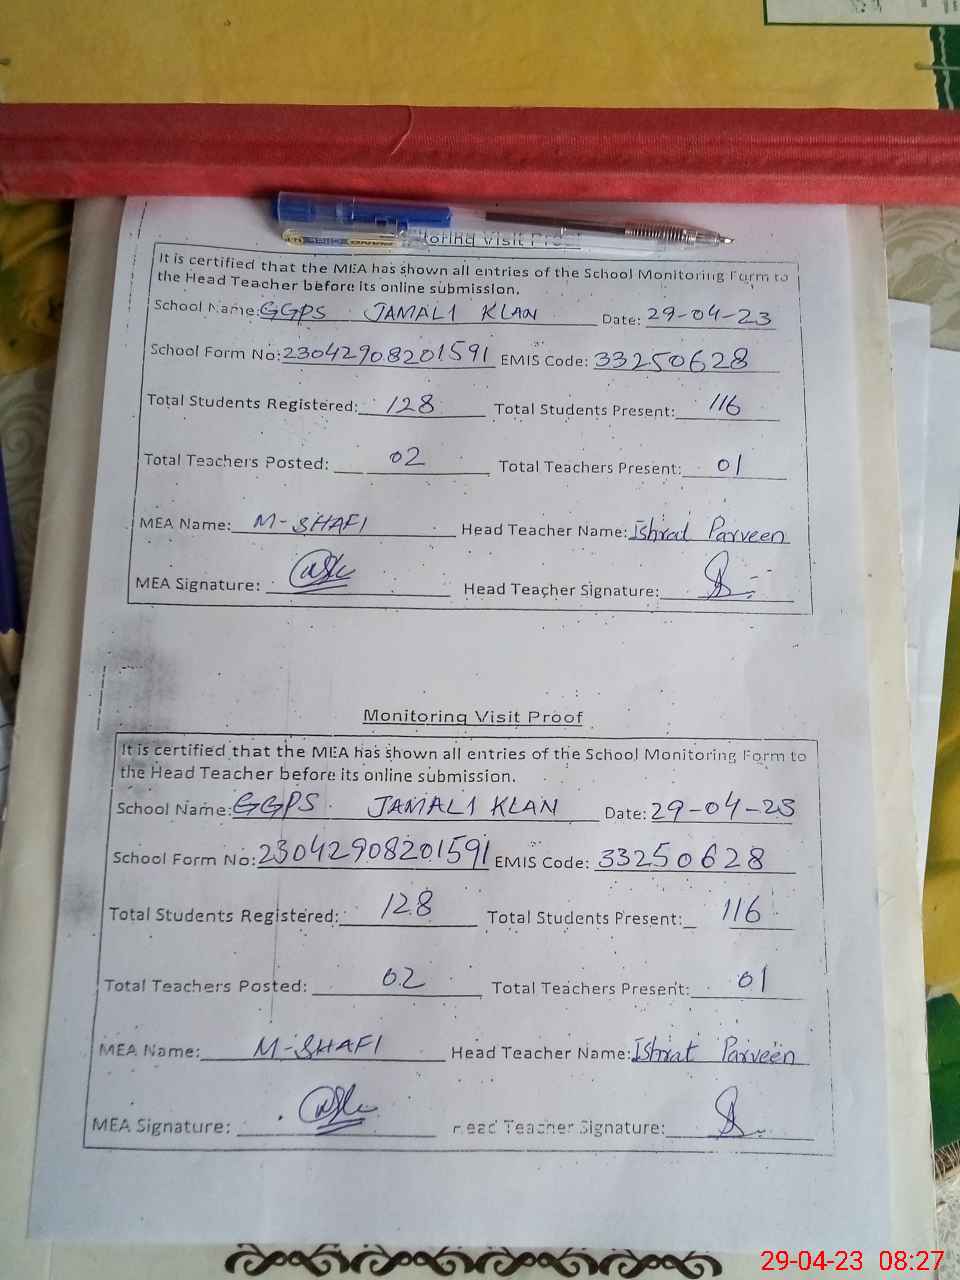 toring Visit Proof
It is certified that the MEA has shown all entries of the School Monitoring Form to
the Head Teacher before its online submission.
School Name: GGPS JAMALI KLAN Date: 29-04-23
School Form No: 23042908201591 EMIS Code: 33250628
Total Students Registered: 128 Total Students Present: 116
Total Teachers Posted: 02 Total Teachers Present: 01
MEA Name: M-SHAFI Head Teacher Name: Ishrat Parveen
MEA Signature: Head Teacher Signature:
Monitoring Visit Proof
It is certified that the MEA has shown all entries of the School Monitoring Form to
the Head Teacher before its online submission.
School Name: GGPS JAMALI KLAN Date: 29-04-23
School Form No: 23042908201591 EMIS Code: 33250628
Total Students Registered: 128 Total Students Present: 116
Total Teachers Posted: 02 Total Teachers Present: 01
MEA Name: M-SHAFI Head Teacher Name: Ishrat Parveen
MEA Signature: Head Teacher Signature:
29-04-23 08:27